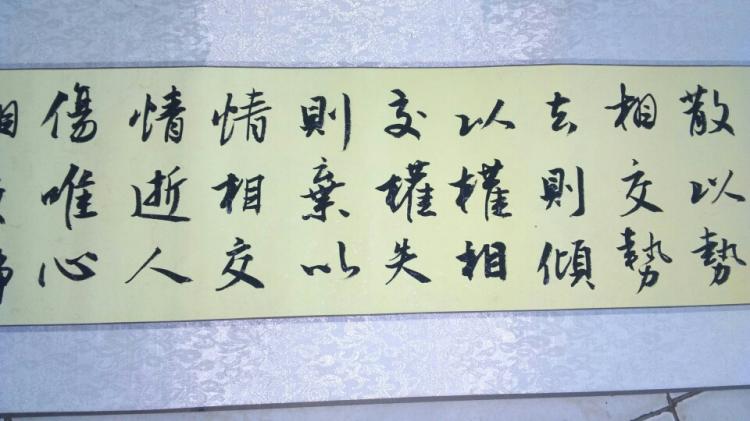 散以勢
相交勢
去則傾
以權相
交權失
則棄以
情相交
情逝人
傷唯心
相